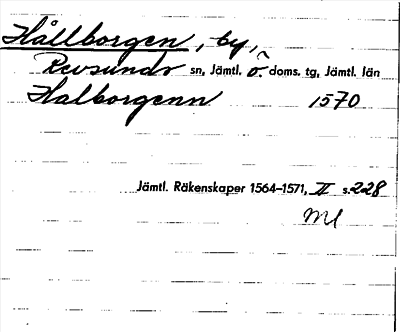 Hållborgen, by,
Revsunds sn, Jämtl. ö. doms. tg, Jämtl. län
Halborgenn 1570
Jämtl. Räkenskaper 1564-1571, II s. 228